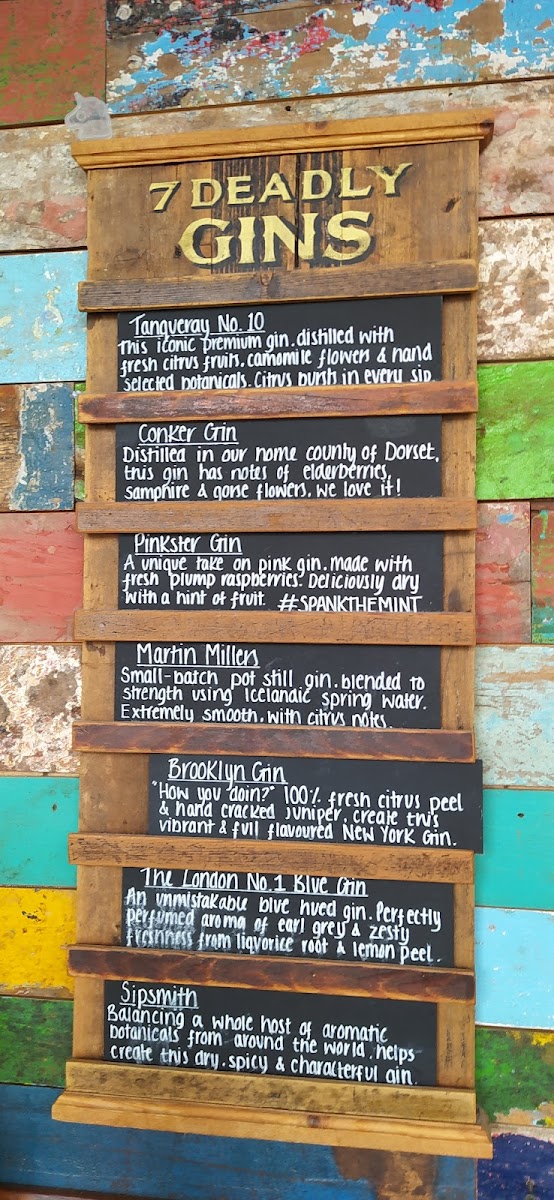 7 DEADLY
GINS
Tanqueray No. 10
This iconic premium gin. distilled with
fresh citrus fruits, camomile flowers & hand
selected botanicals. Citrus burst in every sip
Conker Gin
Distilled in our home county of Dorset,
this gin has notes of elderberries,
samphire & gorse flowers. We love it!
Pinkster Gin
A unique take on pink gin. made with
fresh plump raspberries. Deliciously dry
with a hint of fruit. #SPANKTHEMINT
Martin Millers
Small-batch pot still gin. blended to
strength using Icelandic spring water.
Extremely smooth, with citrus notes.
Brooklyn Gin
"How you doin?" 100% fresh citrus peel
& hand cracked juniper, create this
vibrant & full flavoured New York Gin.
The London No.1 Blue Gin
An unmistakable blue hued gin. Perfectly
perfumed aroma of earl grey & zesty
freshness from liqvorice root & lemon peel.
Sipsmith
Balancing a whole host of aromatic
botanicals from around the world, helps
create this dry, spicy & characterful gin.